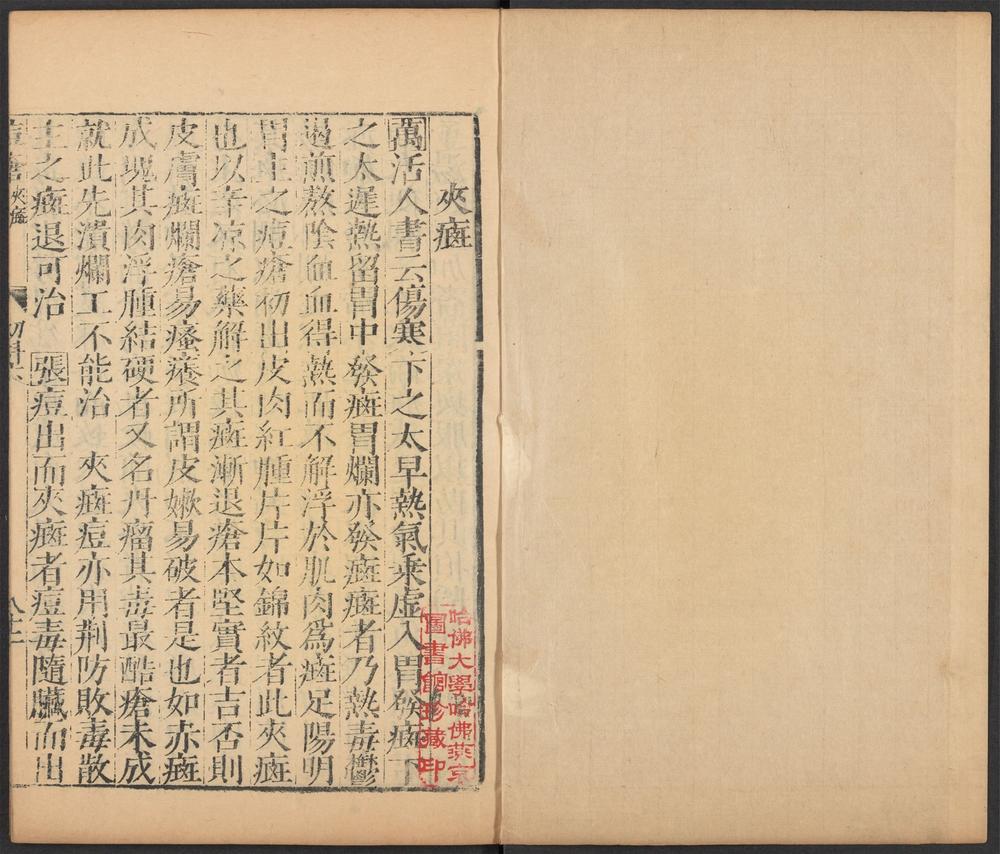 夾癍
萬活人書云傷寒下之太早熱氣乘虛入胃發癍下
之太遲熱留胃中發癍胃爛亦發癍癍者乃熱毒鬱
過煎熬陰血血得熱而不解浮於肌肉爲癍足陽明
胃主之痘瘡初出皮肉紅腫片片如錦紋者此夾癍
也以辛凉之藥解之其癍漸退瘡本堅實者吉否則
皮膚癍爛瘡易瘙癢所謂皮嫰易破者是也如赤癍
成塊其肉浮腫結硬者又名丹瘤其毒最酷瘡未成
就此先潰爛工不能治 夾癍痘亦用荆防敗毒散
主之癍退可治 張痘出而夾癍者痘毒隨臟而出
夾癍
哈佛大學哈佛燕京
圖書館珍藏印